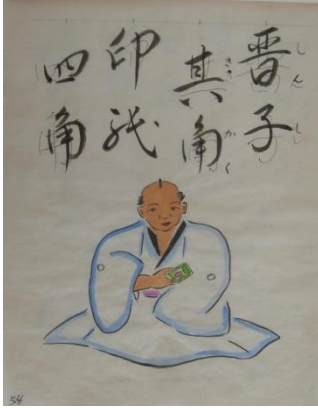 晋子
しんし
其角
きかく
印紙
四角
54